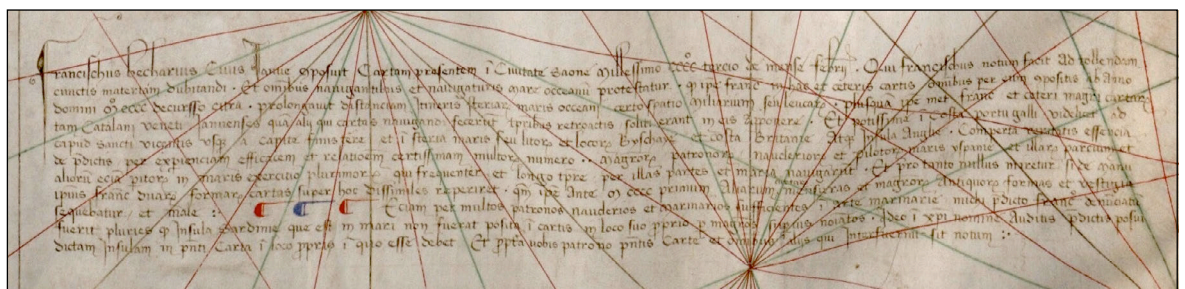 Francischus becharius Civis Janue composuit Cartam presentem i Civitate Saone Millessimo cccc tercio de mense febrii. Qui francischus notum facit Ad tollendam
cunctis materiam dubitandi. Et omibus navigantibus et navigaturis mare occeanum protestatur. q ipe franc in has et ceteris cartis omibus per eum opositis ab Anno
domini mo cccc decursso citra. prolongavit distanciam itineris sterian maris occeani certo spatio miliarium seu leucarum. plusqua ipe met franc et ceteri magri cartar
tam Catalani veneti Jannenses qua alii qui cartas navigandi fecerunt tpribus retroactis soliti erant in eis aponere. Et potissime i costa portugalli videlicet ad
capud sancti vicentii usq a capite finisterre et i steria maris seu litora et locora byschaye et costa britanie Atq insula Anglie. Comperta veritatis essencia
de pdictis per expienciam efficacem et relatioem certissimam multor numero. magror patronor nauclerior et pilotor maris yspanie et illarum parcium et
aliorum ecia pitor in maris exercitio plurimor qui frequenter et longo tpre per illas partes et maria navigarunt. Et pro tanto nullus miretur si de manu
ipsius franc duarum formar cartas super hoc dissimiles reperiret. qm ipe Ante mo cccc primum Aliarum mensuras et magror Antiquor formas et vestigia
sequebatur et male :: Eciam per multos patronos nauclerios et marinarios sufficientes i arte marinarie michi pdicto franc denunciatum
fuerit pluries q Insula Sardinie que est in mari non fuerat posita i cartis in loco suo pprio p magros supius noiatos. Ideo i xpi nomine Auditis pdictis posui
dictam Insulam in pnti Carta i loco pprio i quo esse debet Et ppta vobis patrono pntis Carte et omibus aliis qui Interfuerint sit notum ::